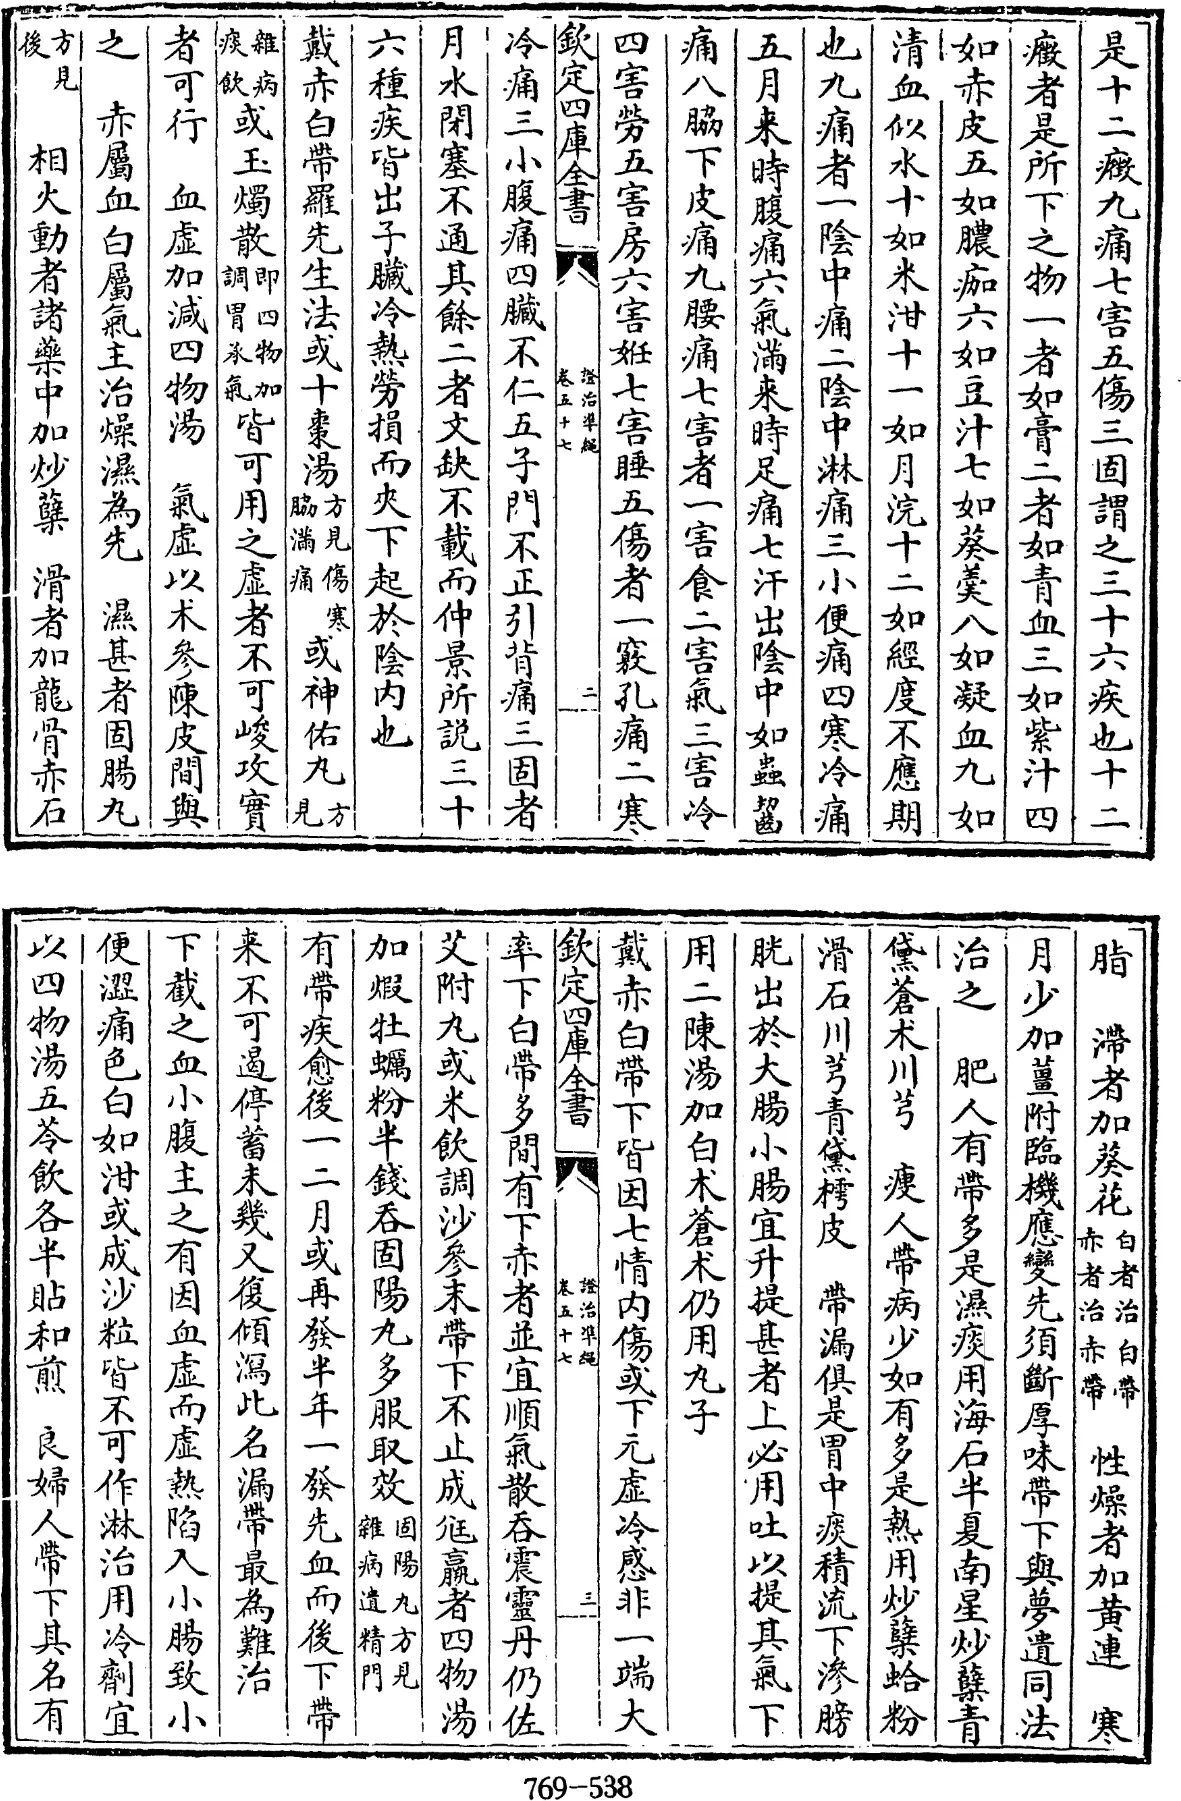 是十二癥九痛七害五傷三固謂之三十六疾也十二
癥者是所下之物一者如膏二者如青血三如紫汁四
如赤皮五如膿痂六如豆汁七如葵羹八如凝血九如
清血似水十如米泔十一如月浣十二如經度不應期
也九痛者一陰中痛二陰中淋痛三小便痛四寒冷痛
五月来時腹痛六氣滿来時足痛七汗出陰中如蟲齧
痛八脇下皮痛九腰痛七害者一害食二害氣三害冷
四害勞五害房六害姙七害睡五傷者一竅孔痛二寒
欽定四庫全書 證治準繩 卷五十七 二
冷痛三小腹痛四臟不仁五子門不正引背痛三固者
月水閉塞不通其餘二者文缺不載而仲景所説三十
六種疾皆出子臟冷熱勞損而夾下起於陰内也
戴赤白帶羅先生法或十棗湯方見傷寒脇滿痛或神佑丸方見
雜病痰飲或玉燭散即四物加調胃承氣皆可用之虚者不可峻攻實
者可行 血虚加減四物湯 氣虚以术參陳皮間與
之 赤屬血白屬氣主治燥濕為先 濕甚者固腸丸
方見後 相火動者諸藥中加炒蘗 滑者加龍骨赤石
脂 滯者加葵花白者治白帶赤者治赤帶 性燥者加黄連 寒
月少加薑附臨機應變先須斷厚味帶下與夢遺同法
治之 肥人有帶多是濕痰用海石半夏南星炒蘗青
黛蒼术川芎 瘦人帶病少如有多是熱用炒蘗蛤粉
滑石川芎青黛樗皮 帶漏俱是胃中痰積流下滲膀
胱出於大腸小腸宜升提甚者上必用吐以提其氣下
用二陳湯加白术蒼术仍用丸子
戴赤白帶下皆因七情内傷或下元虚冷感非一端大
欽定四庫全書 證治準繩 卷五十七 三
率下白帶多間有下赤者並宜順氣散吞震靈丹仍佐
艾附丸或米飲調沙參末帶下不止成尫羸者四物湯
加煆牡蠣粉半錢吞固陽丸多服取效固陽丸方見雜病遺精門
有帶疾愈後一二月或再發半年一發先血而後下帶
来不可遏停蓄未幾又復傾瀉此名漏帶最為難治
下截之血小腹主之有因血虚而虚熱陷入小腸致小
便澀痛色白如泔或成沙粒皆不可作淋治用冷劑宜
以四物湯五苓飲各半貼和煎 良婦人帶下其名有
769-538